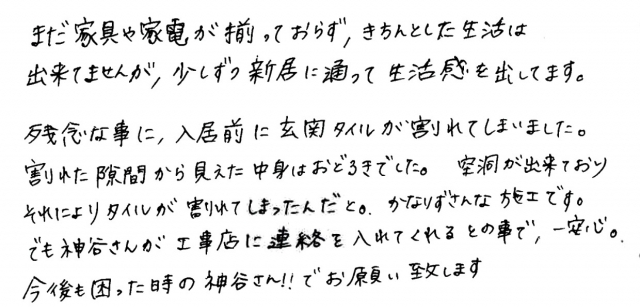 まだ家具や家電が揃っておらず,きちんとした生活は
出来てませんが,少しずつ新居に通って生活感を出してます。
残念な事に,入居前に玄関タイルが割れてしまいました。
割れた隙間から見えた中身はおどろきでした。 空洞が出来ており
それによりタイルが割れてしまったんだと。かなりずさんな施工です。
でも神谷さんが工事店に連絡を入れてくれるとの事で,一安心。
今後も困った時の神谷さん!!でお願い致します